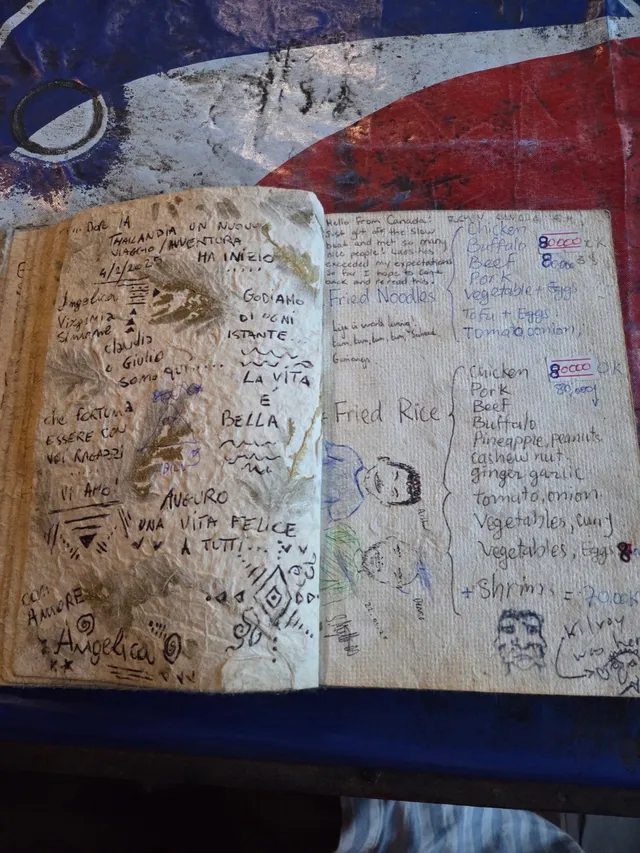 ... DOPO LA
THAILANDIA UN NUOVO
VIAGGIO/AVVENTURA
HA INIZIO
4/2/2025
.....
Angelica
Virginia
Simone
Claudia
e Giulio
SOMO QUI....
GODIAMO
DI OGNI
ISTANTE...
LA VITA
È
BELLA
che FORTUNA
ESSERE CON
VOI RAGAZZI
...
VI AMO!
AUGURO
UNA VITA FELICE
A TUTTI...
CON
AMORE
Angelica
Hello From Canada!
Just got off the slow
boat and met so many
nice people! Laos has
exceeded my expectations
so far I hope to come
back and re read this.
Fried Noodles
Life is worth living!
Chicken
Buffalo
80000
Beef
Pork
Vegetable + Eggs
Tofu + Eggs
Tomato, onion,
Fried Rice
Chicken
80000
Pork
80,000
Beef
Buffalo
Pineapple, peanuts
cashew nut,
ginger garlic
tomato, onion
Vegetables, curry
Vegetables, Eggs
+ Shrimp = 70.00
Kilroy
was